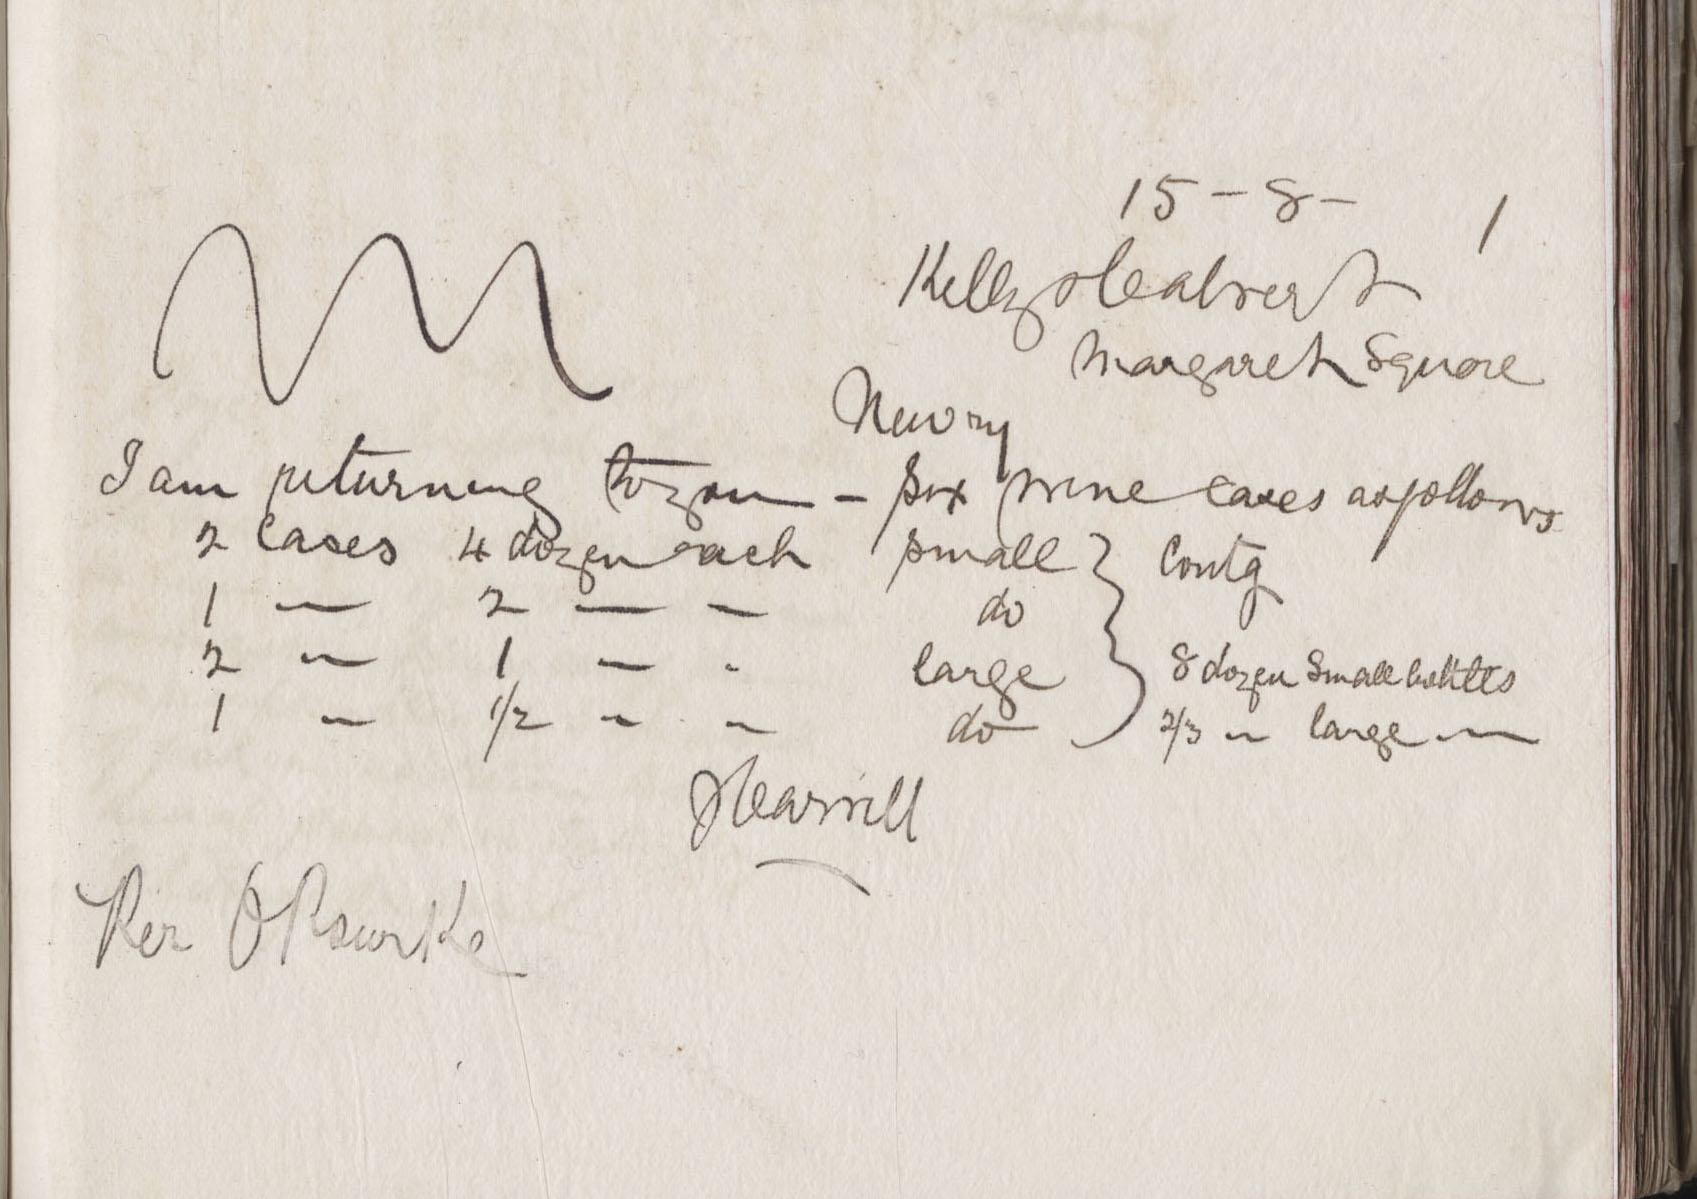 15 - 8 - 1
Kelly
Margaret Square
Newry
I am returning to you - six wine cases as follows
2 Cases 4 dozen each small } Contg
1 — 2 — — do
2 — 1 — - large } 8 dozen small bottles
1 — 1/2 — — do 2/3 — large —
Per O'Rourke